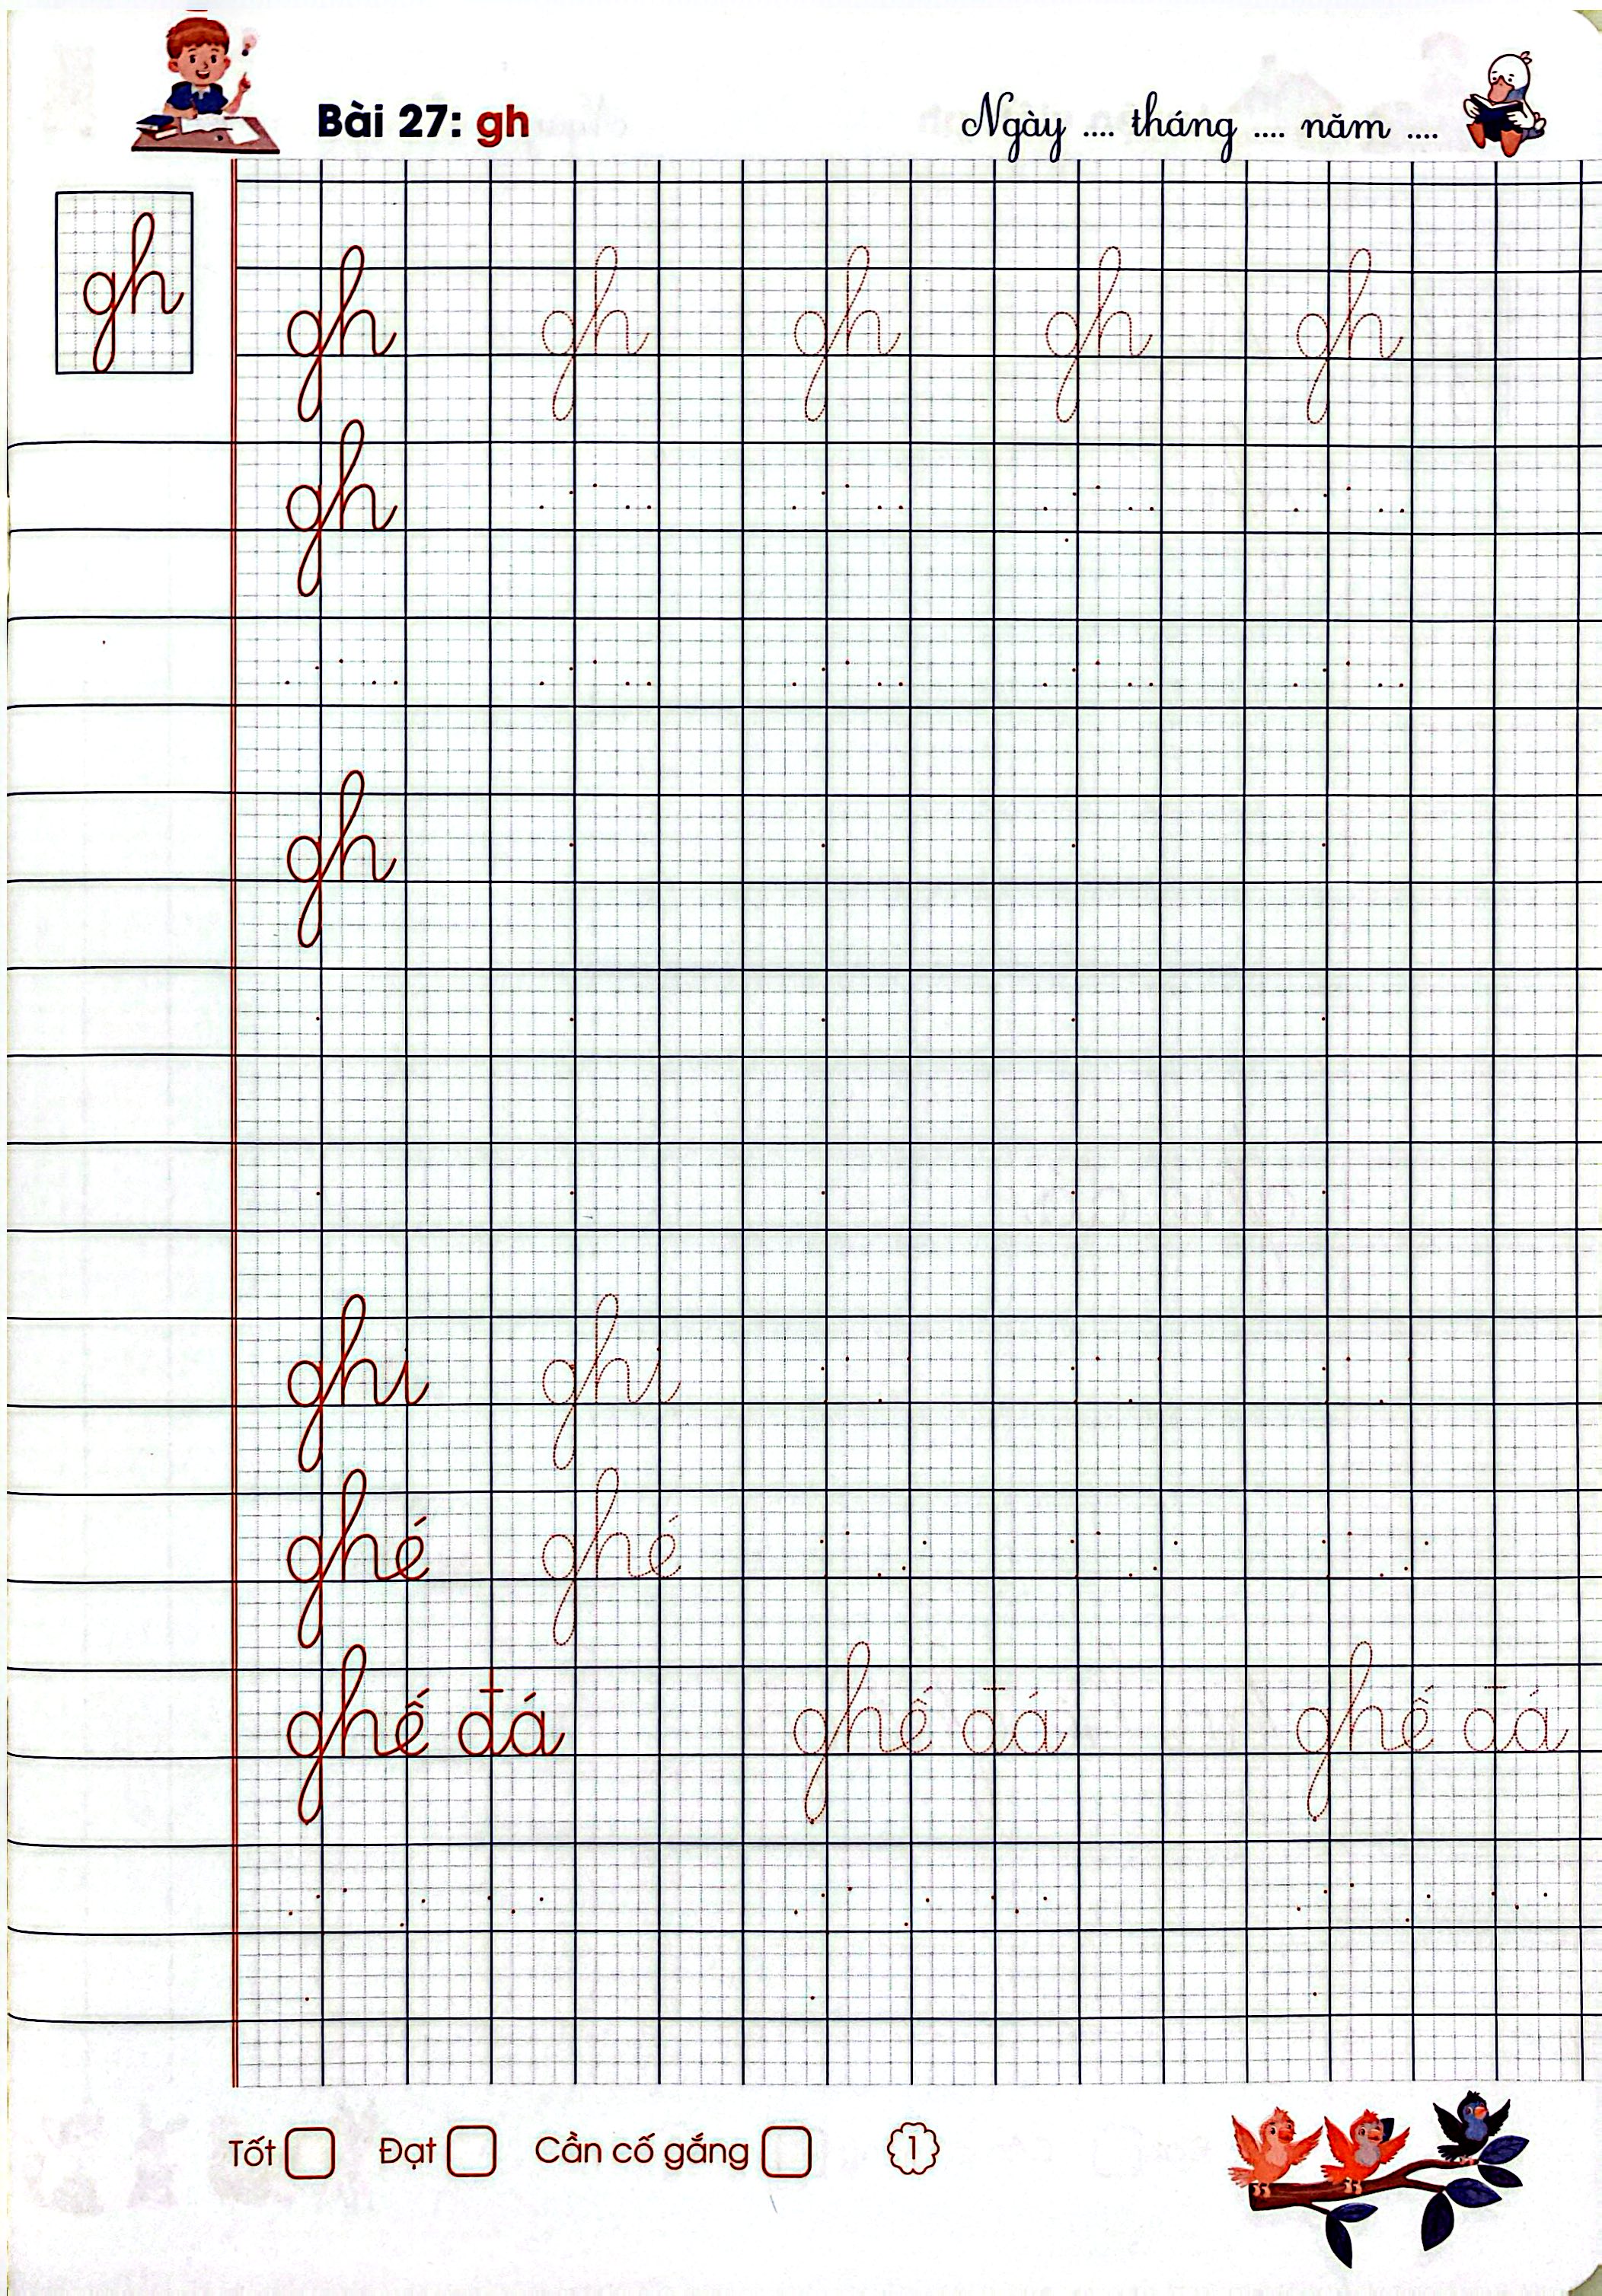 Bài 27: gh
Ngày .... tháng .... năm ....
gh
gh gh gh gh gh
gh
gh
ghi ghi
ghé ghé
ghế đá ghế đá ghế đá
Tốt Đạt Cần cố gắng 1